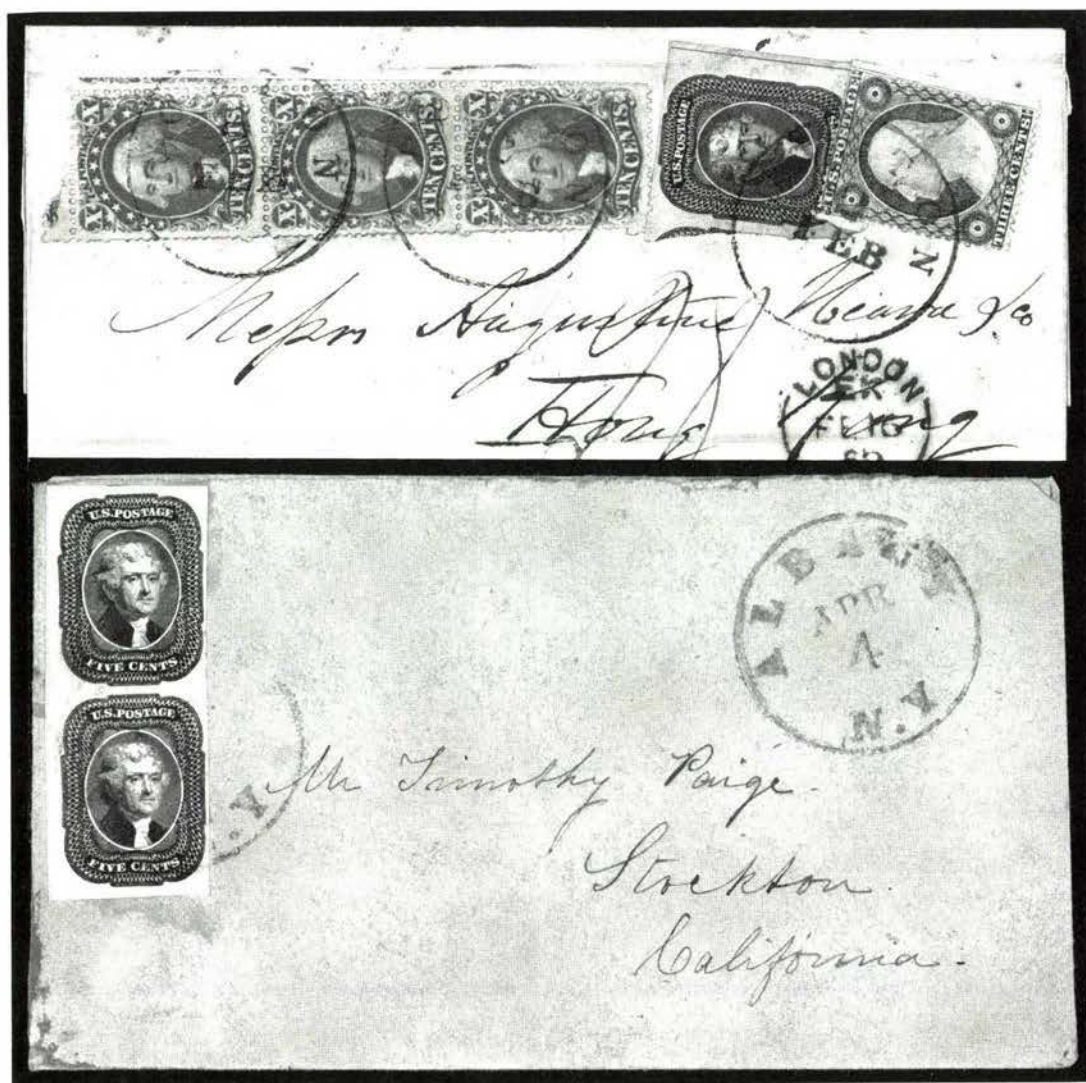 X X TEN CENTS. X X TEN CENTS. X X TEN CENTS. U.S. POSTAGE U.S. POSTAGE THREE CENTS
N
FEB
Messrs Augustine Heard & Co
Hong Kong
LONDON
EK
FE 16
60
U.S. POSTAGE
FIVE CENTS
U.S. POSTAGE
FIVE CENTS
.Y
ALBANY
APR
4
N.Y.
Mr Timothy Paige.
Stockton
California.